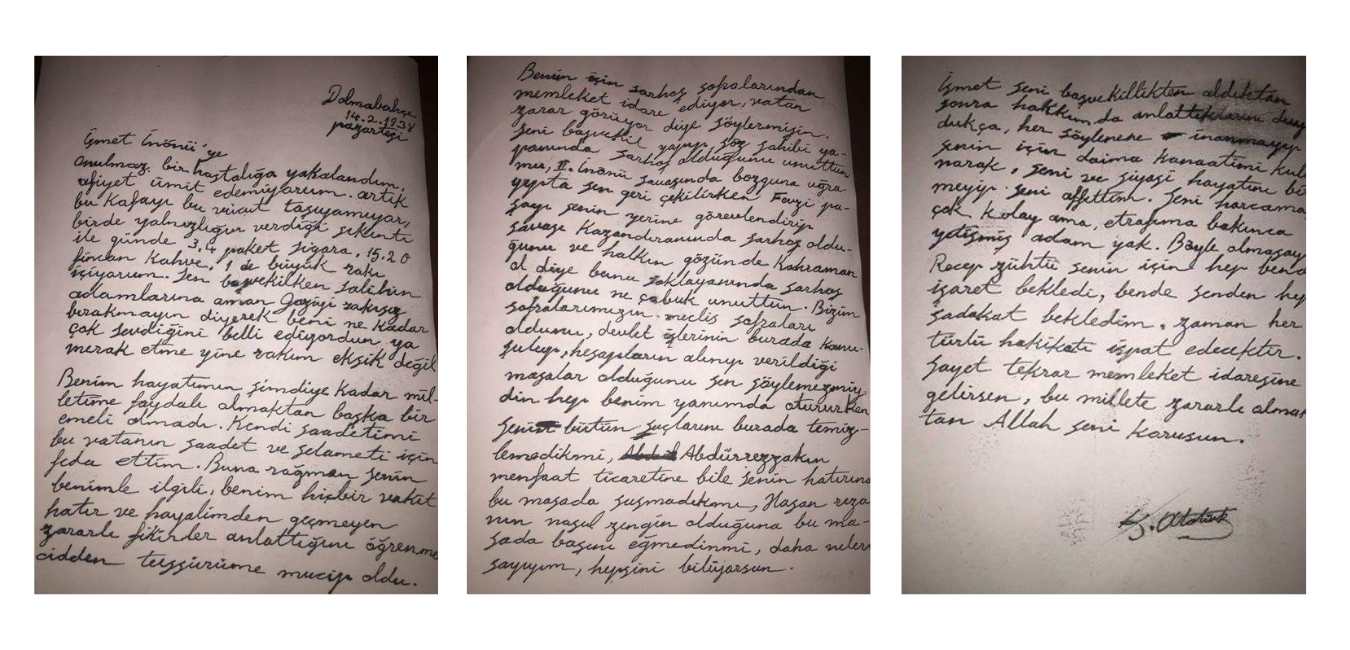 Dolmabahçe
14.2.1938
pazartesi
İsmet İnönü'ye
Onulmaz bir hastalığa yakalandım,
afiyet ümit edemiyorum. artık
bu kafayı bu vücut taşıyamıyor,
birde yalnızlığın verdiği sıkıntı
ile günde 3,4 paket sigara, 15.20
fincan kahve, 1 de büyük rakı
içiyorum. Sen başvekilken salihin
adamlarına aman Gaziyi rakısız
bırakmayın diyerek beni ne kadar
çok sevdiğini belli ediyordun, ya
merak etme yine rakım eksik değil
Benim hayatımın şimdiye kadar mil-
letime faydalı olmaktan başka bir
emeli olmadı. Kendi saadetimi
bu vatanın saadet ve selameti için
feda ettim. Buna rağmen senin
benimle ilgili, benim hiçbir vakit
hatır ve hayalimden geçmeyen
zararlı fikirler anlattığını öğrenme
cidden teessürüme mucip oldu.
Benim için sarhoş sofralarından
memleket idare ediyor, vatan
zarar görüyor diye söylemişin.
Seni başvekil yapıp, söz sahibi ya-
panında sarhoş olduğunu unuttun
mu, II. İnönü savaşında bozguna uğra
yıpta sen geri çekilirken Fevzi pa-
şayı senin yerine görevlendirip
savaşı kazandıranında sarhoş oldu-
ğunu ve halkın gözünde Kahraman
ol diye bunu saklayanında sarhoş
olduğunu ne çabuk unuttun. Bizim
sofralarımızın meclis sofraları
oldunu, devlet işlerinin burada konu-
şulup, hesapların alınıp verildiği
masalar olduğunu sen söylemezmiy
din hep benim yanımda otururken
Senin bütün suçlarını burada temiz-
lemedikmi, Abdürrezzakın
menfaat ticaretine bile senin hatırına
bu masada susmadıkmı, Hasan rıza
nın nasıl zengin olduğuna bu ma-
sada başını eğmedinmi, daha neler
sayayım, hepsini biliyorsun.
İsmet seni başvekillikten aldıktan
sonra hakkımda anlattıklarını duy
dukça, her söylenene inanmayıp
senin için daima kanaatimi kul
narak, seni ve siyasi hayatını bi
meyip seni affettim. Seni harcama
çok kolay ama, etrafıma bakınca
yetişmiş adam yok. Böyle olmasay
Recep zühtü senin için hep bend
işaret bekledi, bende senden hep
sadakat bekledim. zaman her
türlü hakikatı ispat edecektir.
Şayet tekrar memleket idaresine
gelirsen, bu millete zararlı olmak
tan Allah seni korusun.
K. Atatürk